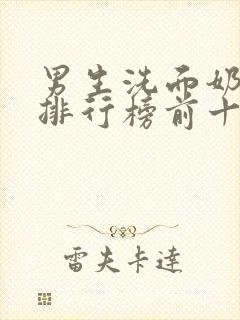 男生洗面奶
排行榜前十
雷夫卡達